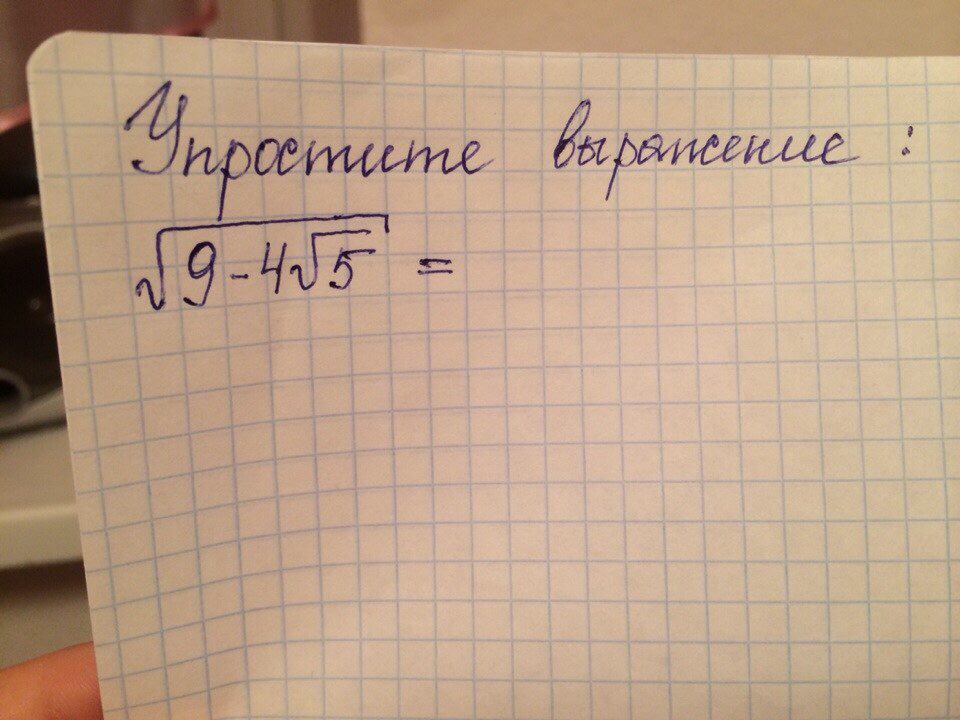 Упростите выражение :
√(9-4√5) =